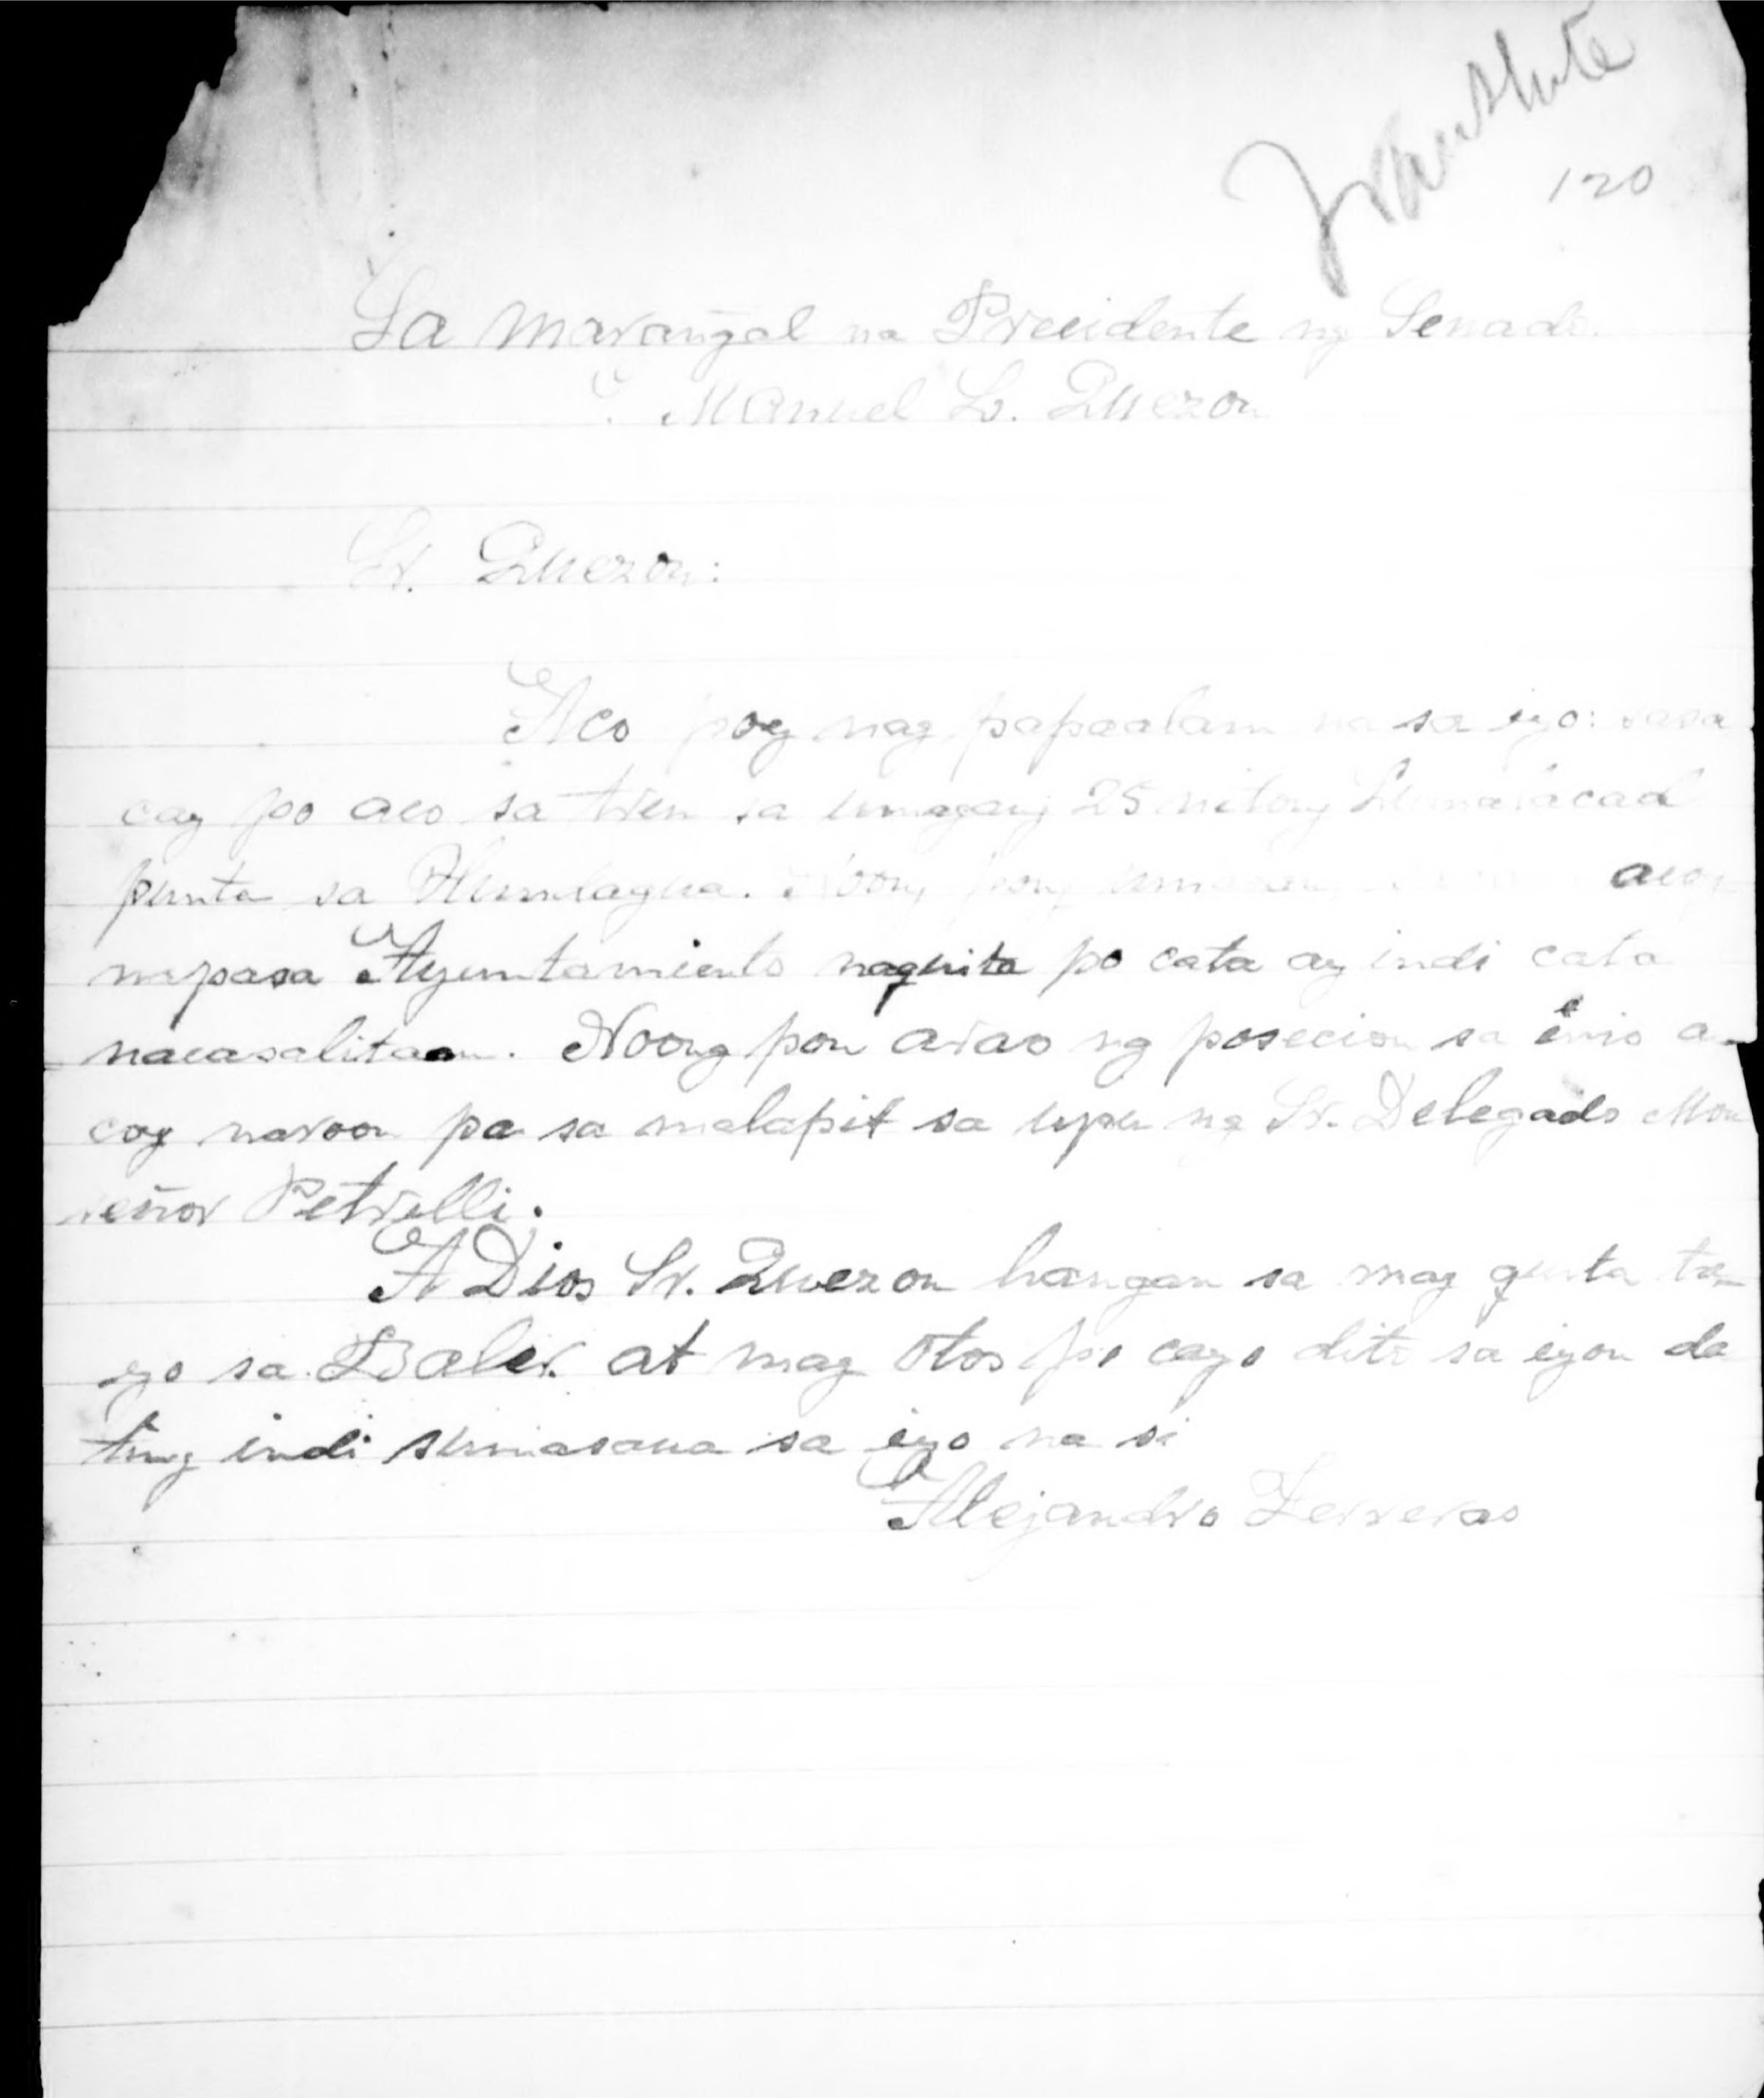 Translate
120
Sa marangal na Precidente ng Senado.
Manuel L. Quezon
Sr. Quezon:
Aco poy nag papaalam na sa iyo: sasa
cay po aco sa tren sa umagang 25 nitong Lumalacad
punta sa Humlagua. Noong pong acoy
napasa Ayuntamiento naquita po cata ay indi cata
nacasalitaan. Noong pon arao ng posecion sa inio a-
coy naroon pa sa malapit sa upu ng Sr. Delegado Mon
señor Petrelli.
A Dios Sr. Quezon hangan sa mag quita ta-
yo sa Baler. at mag otos po cayo dito sa iyon da
ting indi sumasaua sa iyo na si
Alejandro Ferreras